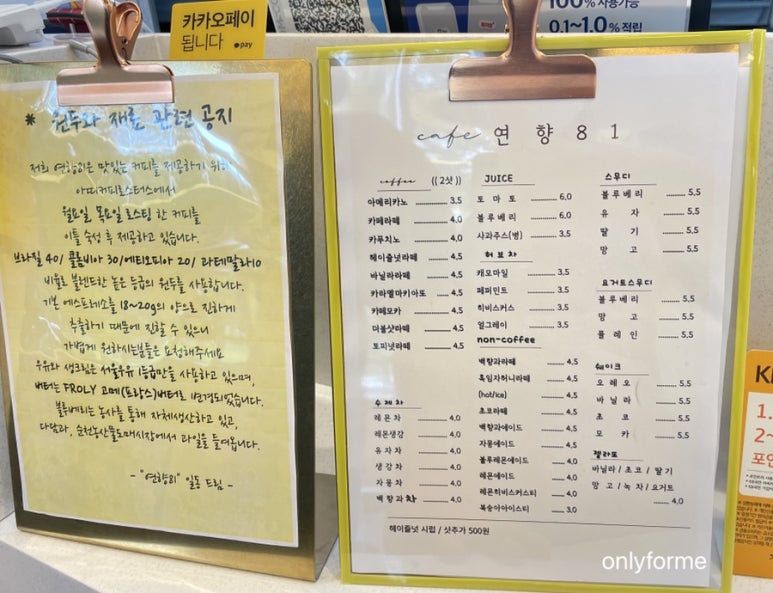 카카오페이
됩니다
pay
100% 사용가능
0.1~1.0% 적립
* 원두와 재료 관련 공지
저희 연향81은 맛있는 커피를 제공하기 위해
어띠커피로스터스에서
월요일, 목요일 로스팅 한 커피를
이틀 숙성 후 제공하고 있습니다.
브라질 40/ 콜롬비아 30/에티오피아 20/ 과테말라10
비율로 블렌드한 높은 등급의 원두를 사용합니다.
기본 에스프레소를 18~20g의 양으로 진하게
추출하기 때문에 진할 수 있으니
가볍게 원하시는분들은 요청해주세요
우유와 생크림은 서울우유 1등급만을 사용하고 있으며,
버터는 FROLY 고메(프랑스)버터로 변경되었습니다.
블루베리는 농사를 통해 자체생산하고 있고,
다담과, 순천농산물도매시장에서 과일을 들여옵니다.
- "연향81" 일동 드림 -
cafe 연향81
coffee ((2샷))
아메리카노 3.5
카페라떼 4.0
카푸치노 4.0
헤이즐넛라떼 4.5
바닐라라떼 4.5
카라멜마키아또 4.5
카페모카 4.5
더블샷라떼 4.5
토피넛라떼 4.5
수제차
레몬차 4.0
레몬생강 4.0
유자차 4.0
생강차 4.0
자몽차 4.0
백향과차 4.0
JUICE
토마토 6.0
블루베리 6.0
사과주스(병) 3.5
허브차
캐모마일 3.5
페퍼민트 3.5
히비스커스 3.5
얼그레이 3.5
non-coffee
백향과라떼 4.5
흑임자허니라떼 4.5
(hot/ice) 4.5
초코라떼 4.5
백향과에이드 4.5
자몽에이드 4.5
블루레몬에이드 4.0
레몬에이드 4.0
레몬히비스커스티 4.0
복숭아아이스티 3.0
스무디
블루베리 5.5
유자 5.5
딸기 5.5
망고 5.5
요거트스무디
블루베리 5.5
망고 5.5
플레인 5.5
쉐이크
오레오 5.5
바닐라 5.5
초코 5.5
모카 5.5
젤라또
바닐라/초코/딸기
망고/녹차/요거트
4.0
헤이즐넛 시럽 / 샷추가 500원
1.
2~
포인
onlyforme